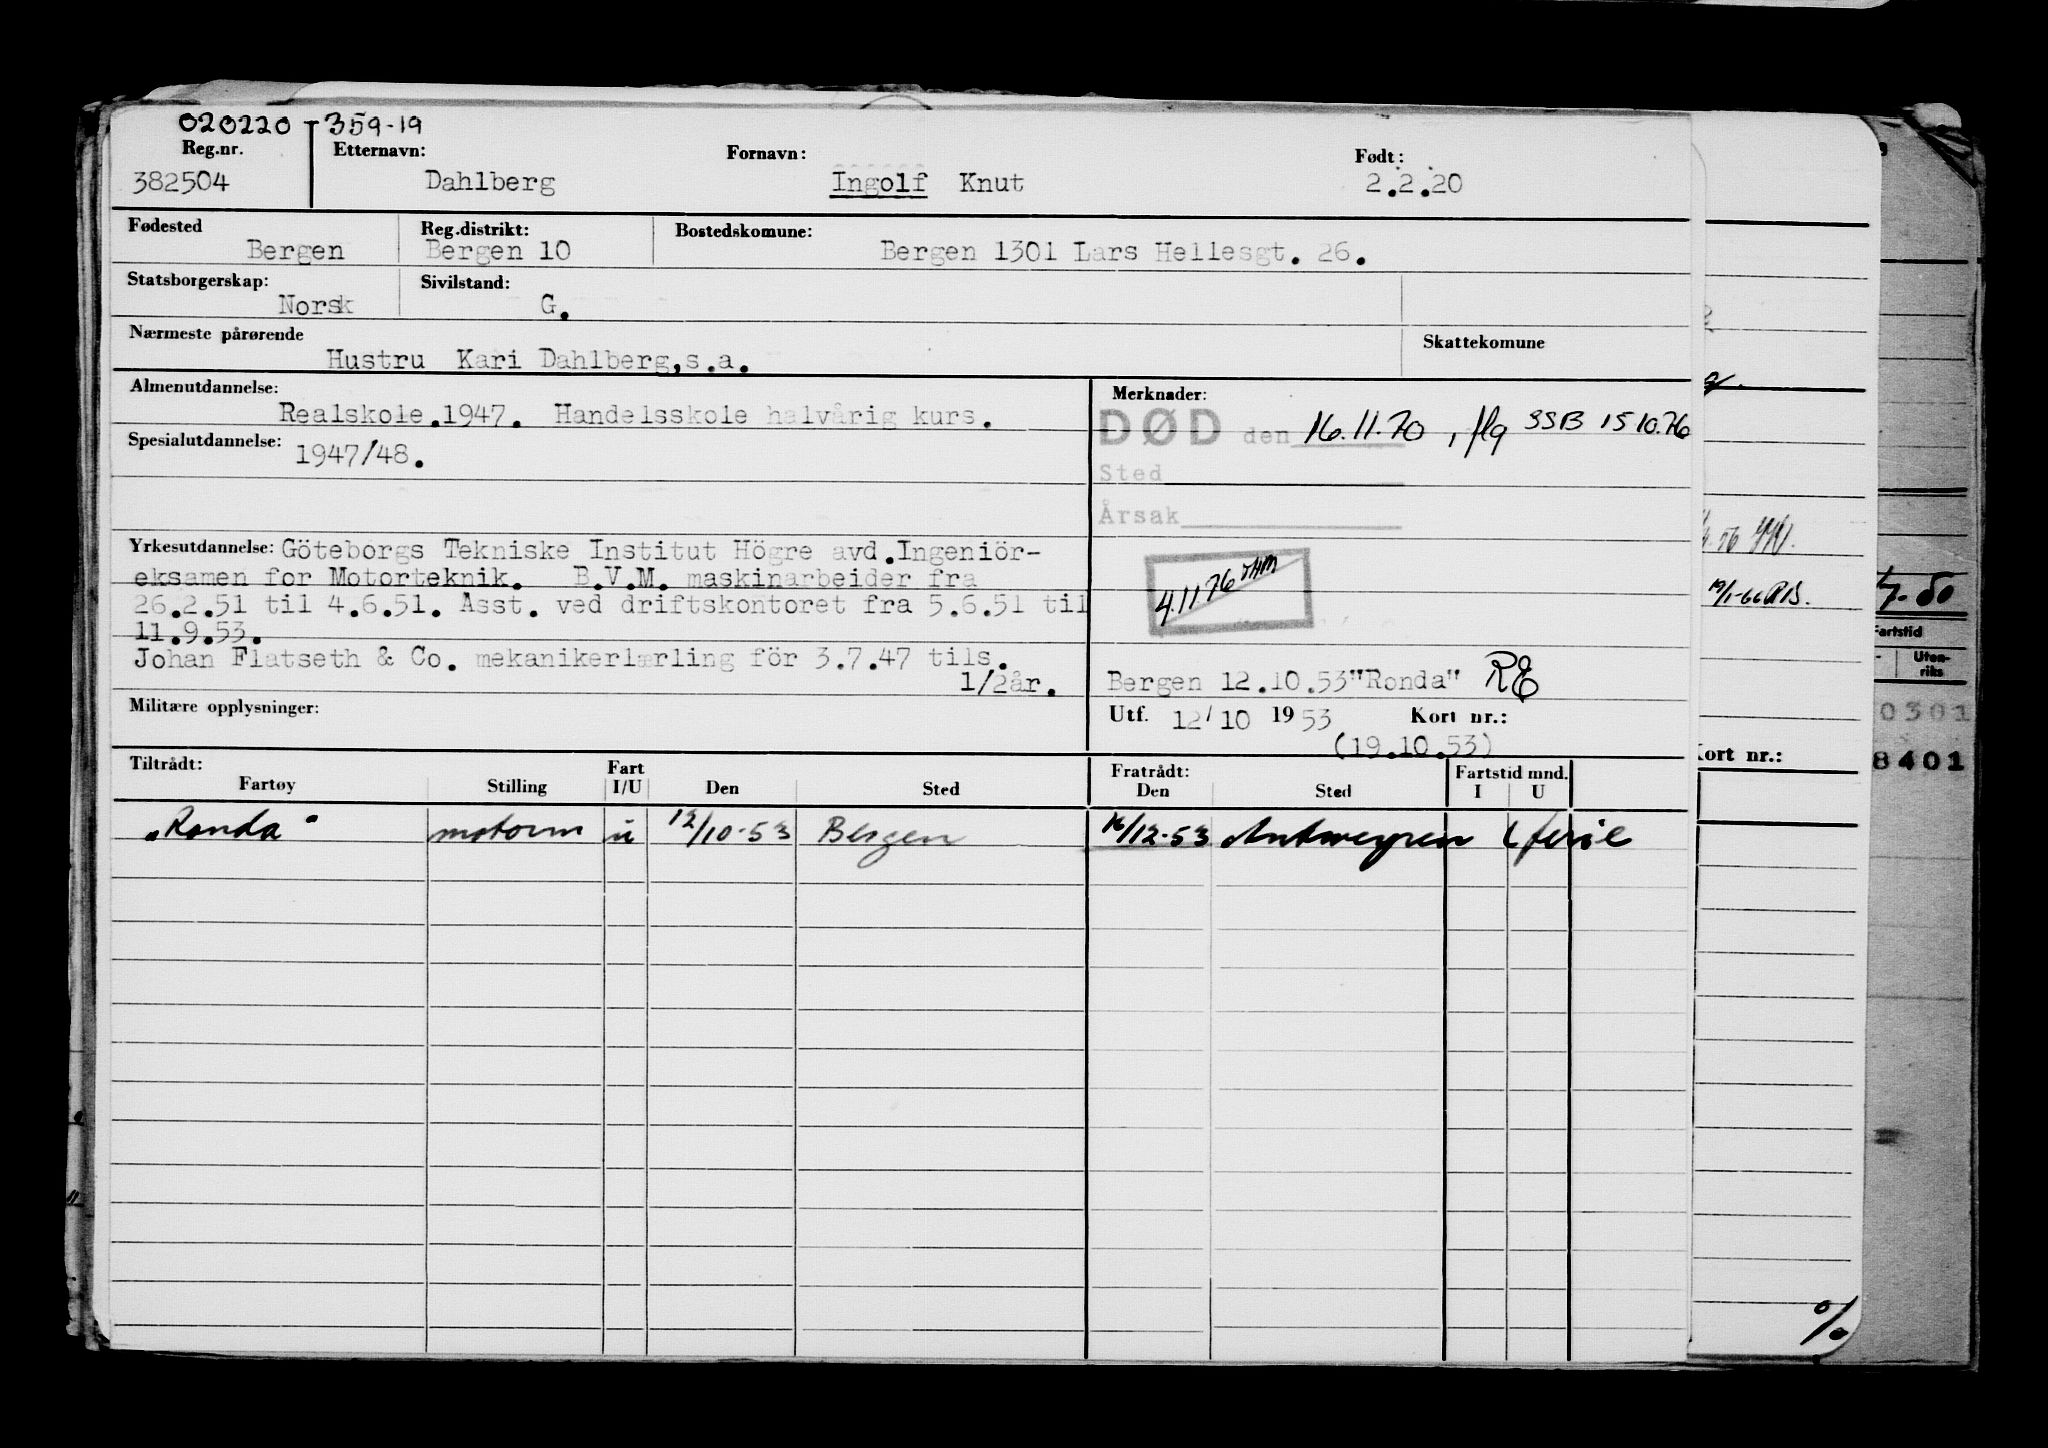 020220 359-19
Reg.nr. Etternavn: Fornavn: Født:
382504 Dahlberg Ingolf Knut 2.2.20
Fødested Reg.distrikt: Bostedskomune:
Bergen Bergen 10 Bergen 1301 Lars Hellesgt. 26.
Statsborgerskap: Sivilstand:
Norsk G.
Nærmeste pårørende Skattekomune
Hustru Kari Dahlberg,s.a.
Almenutdannelse:
Realskole.1947. Handelsskole halvårig kurs.
Spesialutdannelse:
1947/48.
Yrkesutdannelse: Göteborgs Tekniske Institut Högre avd.Ingeniör-
eksamen for Motorteknik. B.V.M. maskinarbeider fra
26.2.51 til 4.6.51. Asst. ved driftskontoret fra 5.6.51 til
11.9.53.
Johan Flatseth & Co. mekanikerlærling för 3.7.47 tils.
1/2år.
Militære opplysninger:
Merknader:
DØD den 16.11.70, flg SSB 15 10.76
Sted
Årsak
4.11 76
Bergen 12.10.53"Ronda" RE
Utf. 12/10 1953 Kort nr.:
(19.10.53)
Tiltrådt: Fart Fratrådt: Fartstid mnd.
Fartøy Stilling I/U Den Sted Den Sted I U
"Ronda" motorm u 12/10-53 Bergen 16/12-53 Antwerpen ferie
19/1-66
4.50
Fartstid
Uten-
riks
0301
Kort nr.:
8401
%